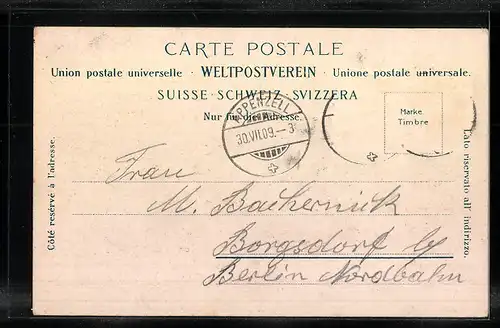 CARTE POSTALE
Union postale universelle · WELTPOSTVEREIN · Unione postale universale.
SUISSE · SCHWEIZ · SVIZZERA
Nur für die Adresse.
APPENZELL
30.VII.09.–3
Marke
Timbre
Côté resérvé à l'adresse.
Lato riservato all' indirizzo.
Frau
M. Bachernick
Borgsdorf b/
Berlin Nordbahn